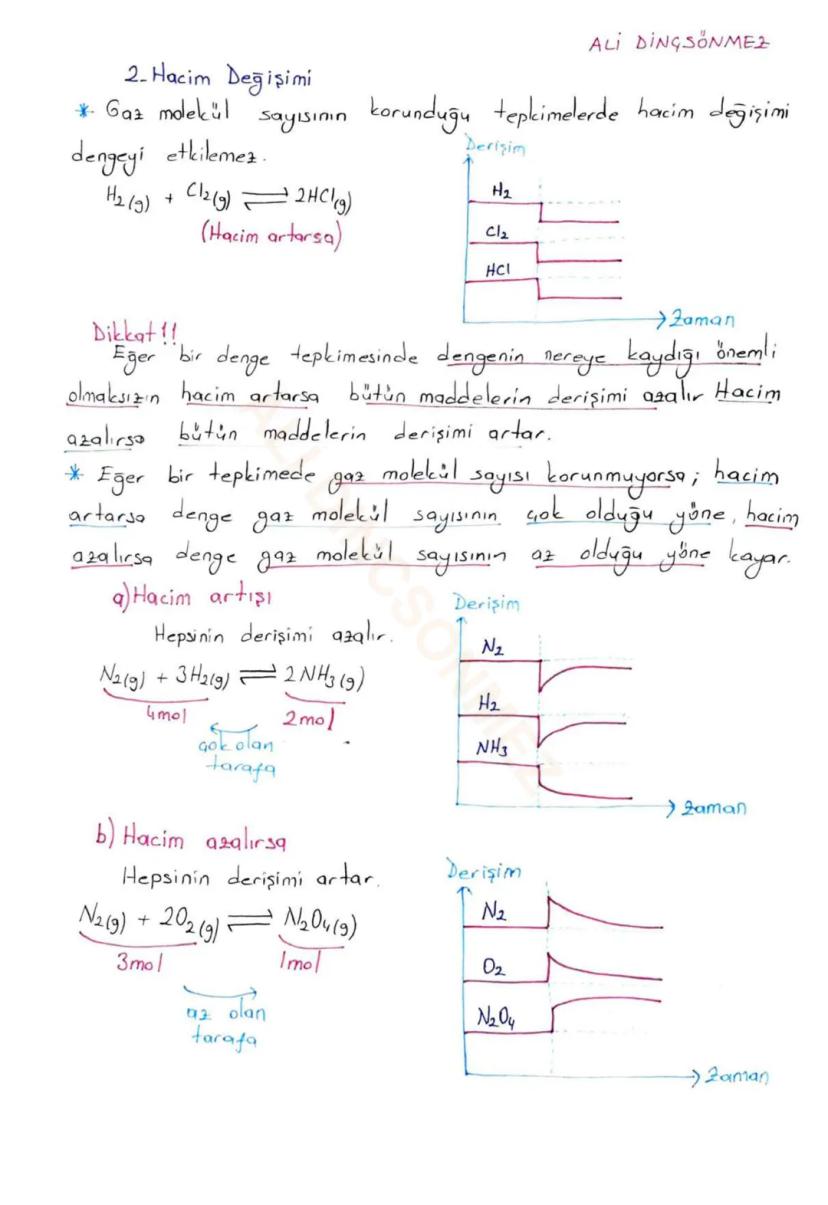 ALİ DİNÇSÖNMEZ
2-Hacim Değişimi
* Gaz molekül sayısının korunduğu tepkimelerde hacim değişimi
dengeyi etkilemez.
H₂(g) + Cl₂(g) ⇌ 2HCl(g)
(Hacim artarsa)
Derişim
H₂
Cl₂
HCl
Zaman
Dikkat!!
Eğer bir denge tepkimesinde dengenin nereye kaydığı önemli
olmaksızın hacim artarsa bütün maddelerin derişimi azalır Hacim
azalırsa bütün maddelerin derişimi artar.
* Eğer bir tepkimede gaz molekül sayısı korunmuyorsa; hacim
artarsa denge gaz molekül sayısının çok olduğu yöne, hacim
azalırsa denge gaz molekül sayısının az olduğu yöne kayar.
a) Hacim artışı
Hepsinin derişimi azalır.
N₂(g) + 3H₂(g) ⇌ 2NH₃(g)
4mol 2mol
çok olan
tarafa
Derişim
N₂
H₂
NH₃
Zaman
b) Hacim azalırsa
Hepsinin derişimi artar.
N₂(g) + 2O₂(g) ⇌ N₂O₄(g)
3mol 1mol
az olan
tarafa
Derişim
N₂
O₂
N₂O₄
Zaman
ALİ DİNÇSÖNMEZ